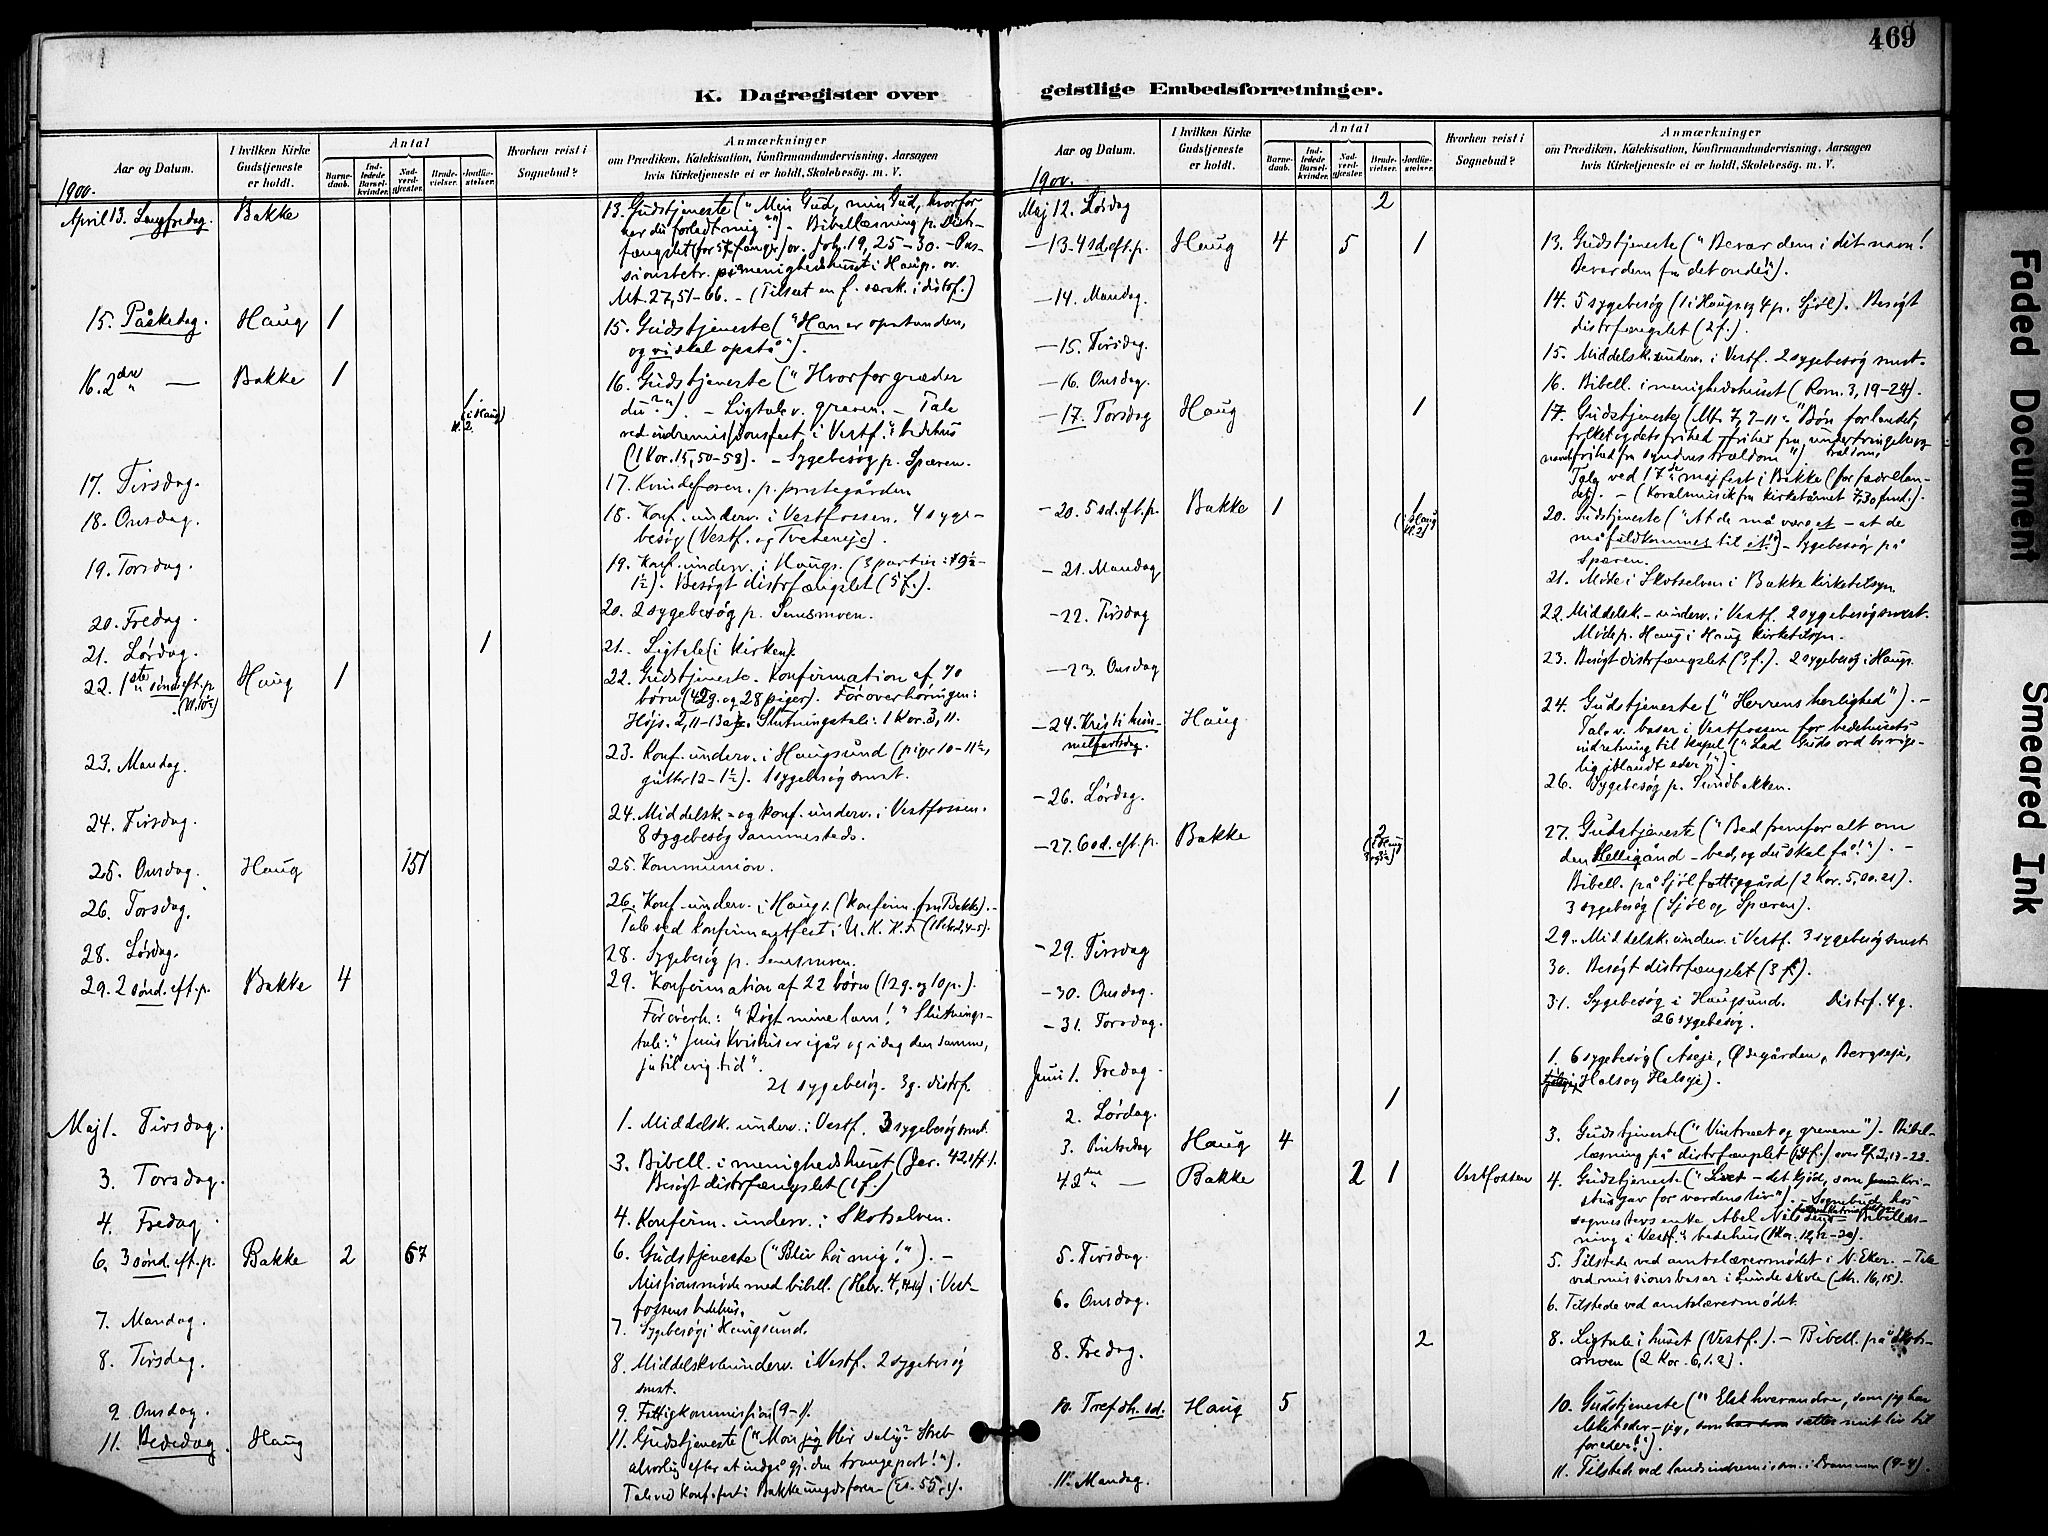 469
K. Dagregister over geistlige Embedsforretninger.
Aar og Datum.
I hvilken Kirke Gudstjeneste er holdt.
Antal
Barne-daab.
Ind-ledede Barsel-kvinder.
Nad-verd-gjester.
Brude-vielser.
Jordfæ-stelser.
Hvorhen reist i Sognebud?
Anmærkninger
om Prædiken, Katekisation, Konfirmandundervisning, Aarsagen
hvis Kirketjeneste ei er holdt, Skolebesøg. m. V.
1900.
April 13. Langfredag. Bakke
13. Gudstjeneste ("Min Gud, min Gud, hvorfor
har du forladt mig?"). – Bibellæsning p. Distr-
fængslet (for 5 fanger) ov. Joh. 19, 25–30. – Pas-
sionsbetr. på menighedshuset i Haugs. ov.
Mt. 27, 51–66. – (Tilseet en f. særsk. i distrf.)
15. Påskedag. Haug 1
15. Gudstjeneste ("Han er opstanden,
og vi skal opstå").
16. 2den " — Bakke 1 1 (i Haug)
16. Gudstjeneste ("Hvorfor græder
du?"). – Ligtale v. graven. – Tale
ved indremissionsfest i Vestf.s bedehus
(1 Kor. 15, 50–58). – Sygebesøg p. Spæren.
17. Tirsdag.
17. Kvindeforen. p. prestegården
18. Onsdag.
18. Konf. underv. i Vestfossen. 4 syge-
besøg (Vestf. og Tveteneje).
19. Torsdag.
19. Konf. underv. i Haugs. (3 partier: 9½–
1½). Besøgt distrfængslet (5 f.).
20. Fredag.
20. 2 sygebesøg p. Semsmoen.
21. Lørdag. 1
21. Ligtale (i Kirken).
22. 1ste sønd. eft. p. Haug 1
22. Gudstjeneste. Konfirmation af 70
børn (42 g. og 28 piger). För overhøringen:
Højs. 2, 11–13. Slutningstale: 1 Kor. 3, 11.
23. Mandag.
23. Konf. underv. i Haugsund (piger 10–11½,
gutter 12–1½). 1 sygebesøg smst.
24. Tirsdag.
24. Middelsk.- og konf. underv. i Vestfossen.
8 sygebesøg sammesteds.
25. Onsdag. Haug 151
25. Kommunion.
26. Torsdag.
26. Konf. underv. i Haugs. (konfirm. fra Bakke). –
Tale ved konfirmantfest i U. K. K. F.
28. Lørdag.
28. Sygebesøg p. Semsmoen.
29. 2 sønd. eft. p. Bakke 4
29. Konfirmation af 22 børn (12 g. og 10 p.).
För overh.: "Røgt mine lam!" Slutnings-
tale: "Jesus Kristus er igår og idag den samme,
ja til evig tid".
21 sygebesøg. 3 g. distrf.
Maj 1. Tirsdag.
1. Middelsk. underv. i Vestf. 3 sygebesøg smst.
3. Torsdag.
3. Bibell. i menighedshuset
Besøgt distrfængslet (1 f.)
4. Fredag.
4. Konfirm. underv. i Skotselven.
6. 3 sønd. eft. p. Bakke 2 67
6. Gudstjeneste ("Bliv hos mig!"). –
Missionsmøde med bibell. i Vest-
fossens bedehus.
7. Mandag.
7. Sygebesøg i Haugsund.
8. Tirsdag.
8. Middelskoleunderv. i Vestf. 2 sygebesøg
smst.
9. Onsdag.
9. Fattigkommission (9–1).
11. Bededag. Haug
11. Gudstjeneste ("Mon jeg blir salig? Stræb
alvorlig efter at indgå gj. den trange port!").
Tale ved konf. fest i Bakke ungdsforen. (Es. 55, 1).
Aar og Datum.
I hvilken Kirke Gudstjeneste er holdt.
Antal
Barne-daab.
Ind-ledede Barsel-kvinder.
Nad-verd-gjester.
Brude-vielser.
Jordfæ-stelser.
Hvorhen reist i Sognebud?
Anmærkninger
om Prædiken, Katekisation, Konfirmandundervisning, Aarsagen
hvis Kirketjeneste ei er holdt, Skolebesøg. m. V.
1900.
Maj 12. Lørdag 2
– 13. 4 sd. eft. p. Haug 4 5 1
13. Gudstjeneste ("Bevar dem i dit navn!
Bevar dem fra det onde!").
– 14. Mandag.
14. 5 sygebesøg (1 i Haugs. og 4 p. Sjöl). Besøgt
distrfængslet (2 f.).
– 15. Tirsdag.
15. Middelsk. underv. i Vestf. 2 sygebesøg smst.
– 16. Onsdag.
16. Bibell. i menighedshuset (Rom. 3, 19–24).
– 17. Torsdag Haug 1
17. Gudstjeneste (Mt. 7, 7–11: "Bøn for landet,
folket og dets frihed
frihed fra syndens trældom")
Tale ved 17de majfest i Bakke (for fædrelan-
det). – (Koralmusik fra kirketårnet 7.30 fm.).
– 20. 5 sd. eft. p. Bakke 1 1 (i Haug
20. Gudstjeneste ("At de må være et – at de
må fuldkommes til et!") – Sygebesøg på
Spæren.
– 21. Mandag
21. Møde i Skotselven i Bakke kirketilsyn.
– 22. Tirsdag
22. Middelsk.-underv. i Vestf. 2 sygebesøg smst.
Møde p. Haug i Haug kirketilsyn.
– 23. Onsdag
23. Besøgt distrfængslet (3 f.). 2 sygebesøg i Haugs.
– 24. Kristi him-
melfartsdag. Haug
24. Gudstjeneste ("Herrens herlighed"). –
Tale v. basar i Vestfossen for bedehusets
indretning til kapel ("Lad Guds ord bo rige-
lig iblandt eder!").
– 26. Lørdag.
26. Sygebesøg p. Sundbakken.
– 27. 6 sd. eft. p. Bakke 2
27. Gudstjeneste ("Bed fremfor alt om
den Helligånd – bed, og du skal få!"). –
Bibell. på Sjöl fattiggård (2 Kor. 5, 20. 21).
3 sygebesøg (Sjöl og Spæren).
– 29. Tirsdag
29. Middelsk. underv. i Vestf. 3 sygebesøg smst.
– 30. Onsdag.
30. Besøgt distrfængslet (3 f.).
– 31. Torsdag.
31. Sygebesøg i Haugsund. Distrf. 4 g.
26 sygebesøg.
Juni 1. Fredag.
1. 6 sygebesøg (Åseje, Ødegården, Bergseje,
Hals og Halseje).
2. Lørdag. 1
3. Pintsedag Haug 4
3. Gudstjeneste ("Vintræet og grenene"). – Bibel-
læsning på distrfængslet over Ef. 2, 13–22.
4. 2den " — Bakke 2 1 Vestfossen
4. Gudstjeneste ("Livet – det kjød, som Kri-
stus gav for verdens liv"). – Sognebud hos
sognesters enke Abel Nilsdtr. – Bibellæs-
ning i Vestf.s bedehus
5. Tirsdag.
5. Tilstede ved amtslærermødet i N. Eker. – Tale
ved missionsbasar i Lunde skole (Mr. 16, 15).
6. Onsdag.
6. Tilstede ved amtslærermødet.
8. Fredag. 2
8. Ligtale i huset (Vestf.). – Bibell. på
moen (2 Kor. 6, 1. 2).
10. Tref. dh. sd. Haug 5
10. Gudstjeneste ("Elsk hverandre, som jeg har
elsket eder – jeg, som sætter mit liv til
for eder!").
11. Mandag.
11. Tilstede ved landsindremis.m. i Drammen (9–9).
Faded Document
Smeared Ink